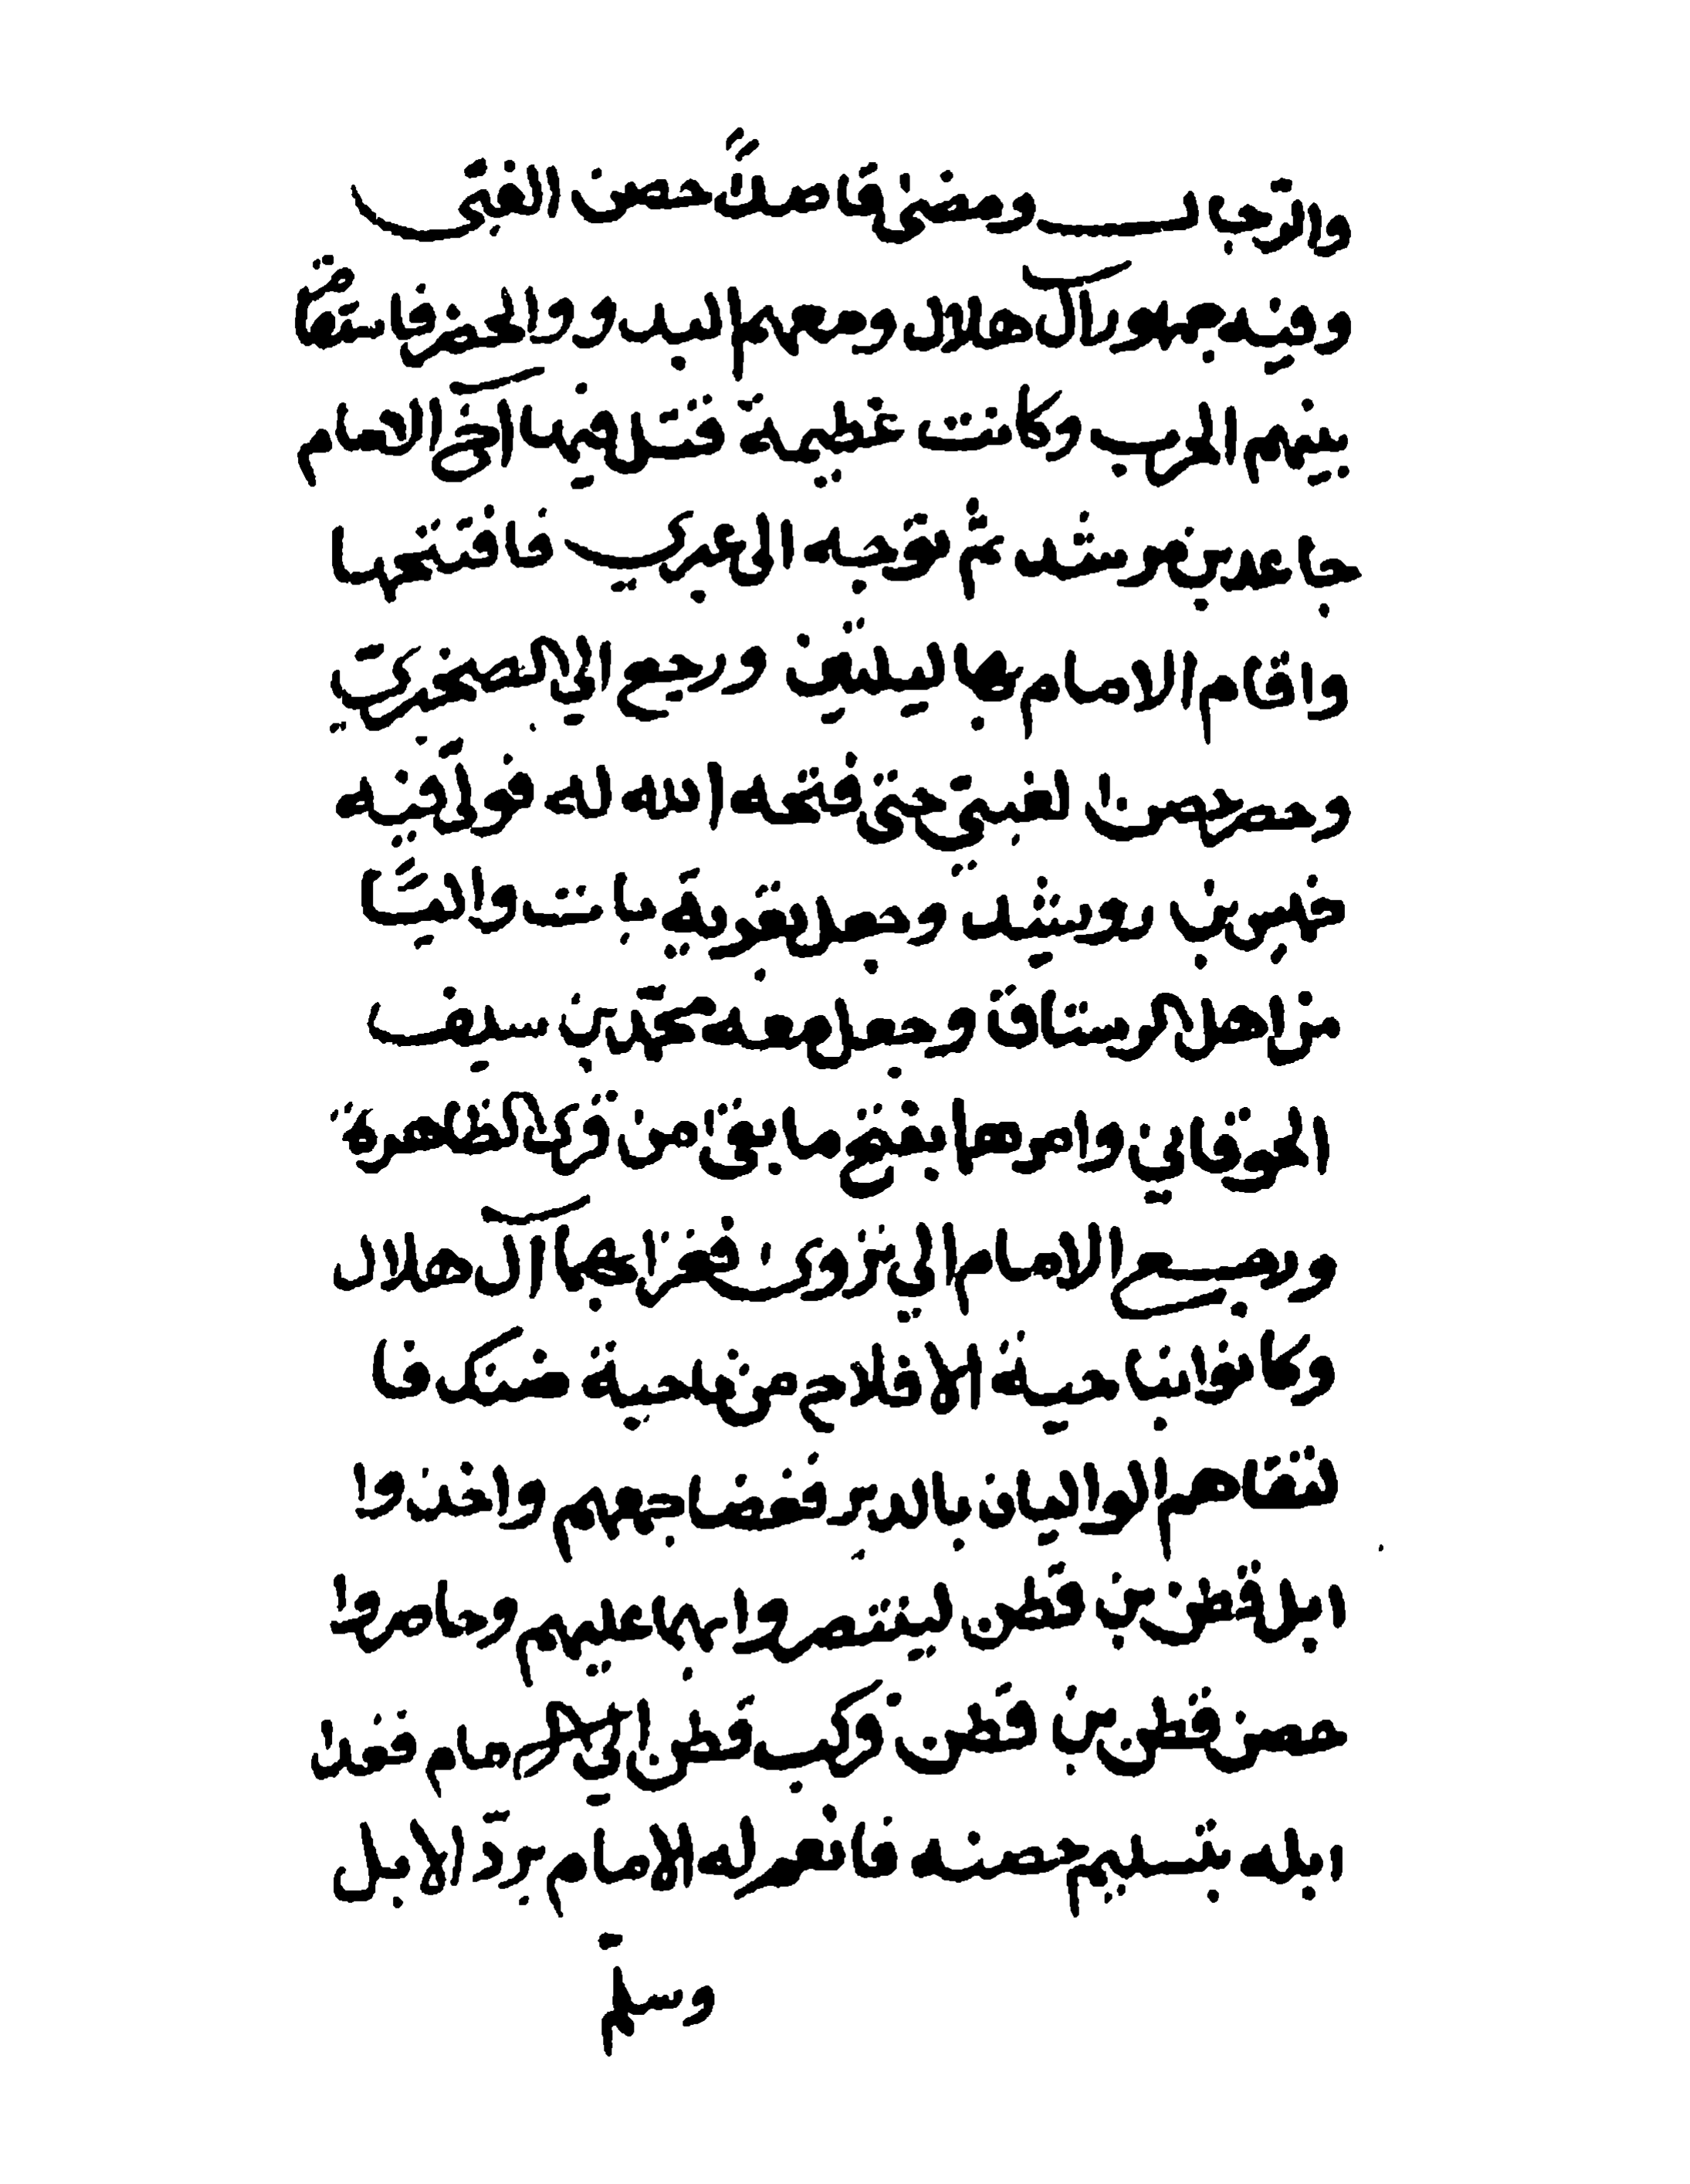 والرّجال ومضىٰ قاصدًا حصن الغبّى
وفيه جمهور آل هلال ومعهم البدو والحضر فاستقامت
بينهم الحرب وكانت عظيمة قتل فيها اخى الامام
جاعد بن مرشد ثم توجه الى عبري فافتتحها
واقام الامام بها ليلتين ورجع الي الصخبري
وحصر حصن الغبىّ حتى فتحه الله له فولّى فيه
خميس بن رويشد وجعل بقرية بات واليًا
من اهل الرستاق وجعل معه محمّد بن سيف
الحوقاني وامرهما بفتح ما بقى من قرى الظاهرة
ورجع الامام الي نزوى فغزا بهما آل هلال
وكانوا بناحية الافلاج من ناحية ضنك فا
لتقاهم الواليان بالدير ففضا جمعهم واخذوا
ابل قطن بن قطن لينتصروا بها عليهم وحاصروا
حصن قطن بن قطن وركب قطن الي الامام ففدا
ابله بتسليم حصنه فانعم له الامام بردّ الابل
وسلّم